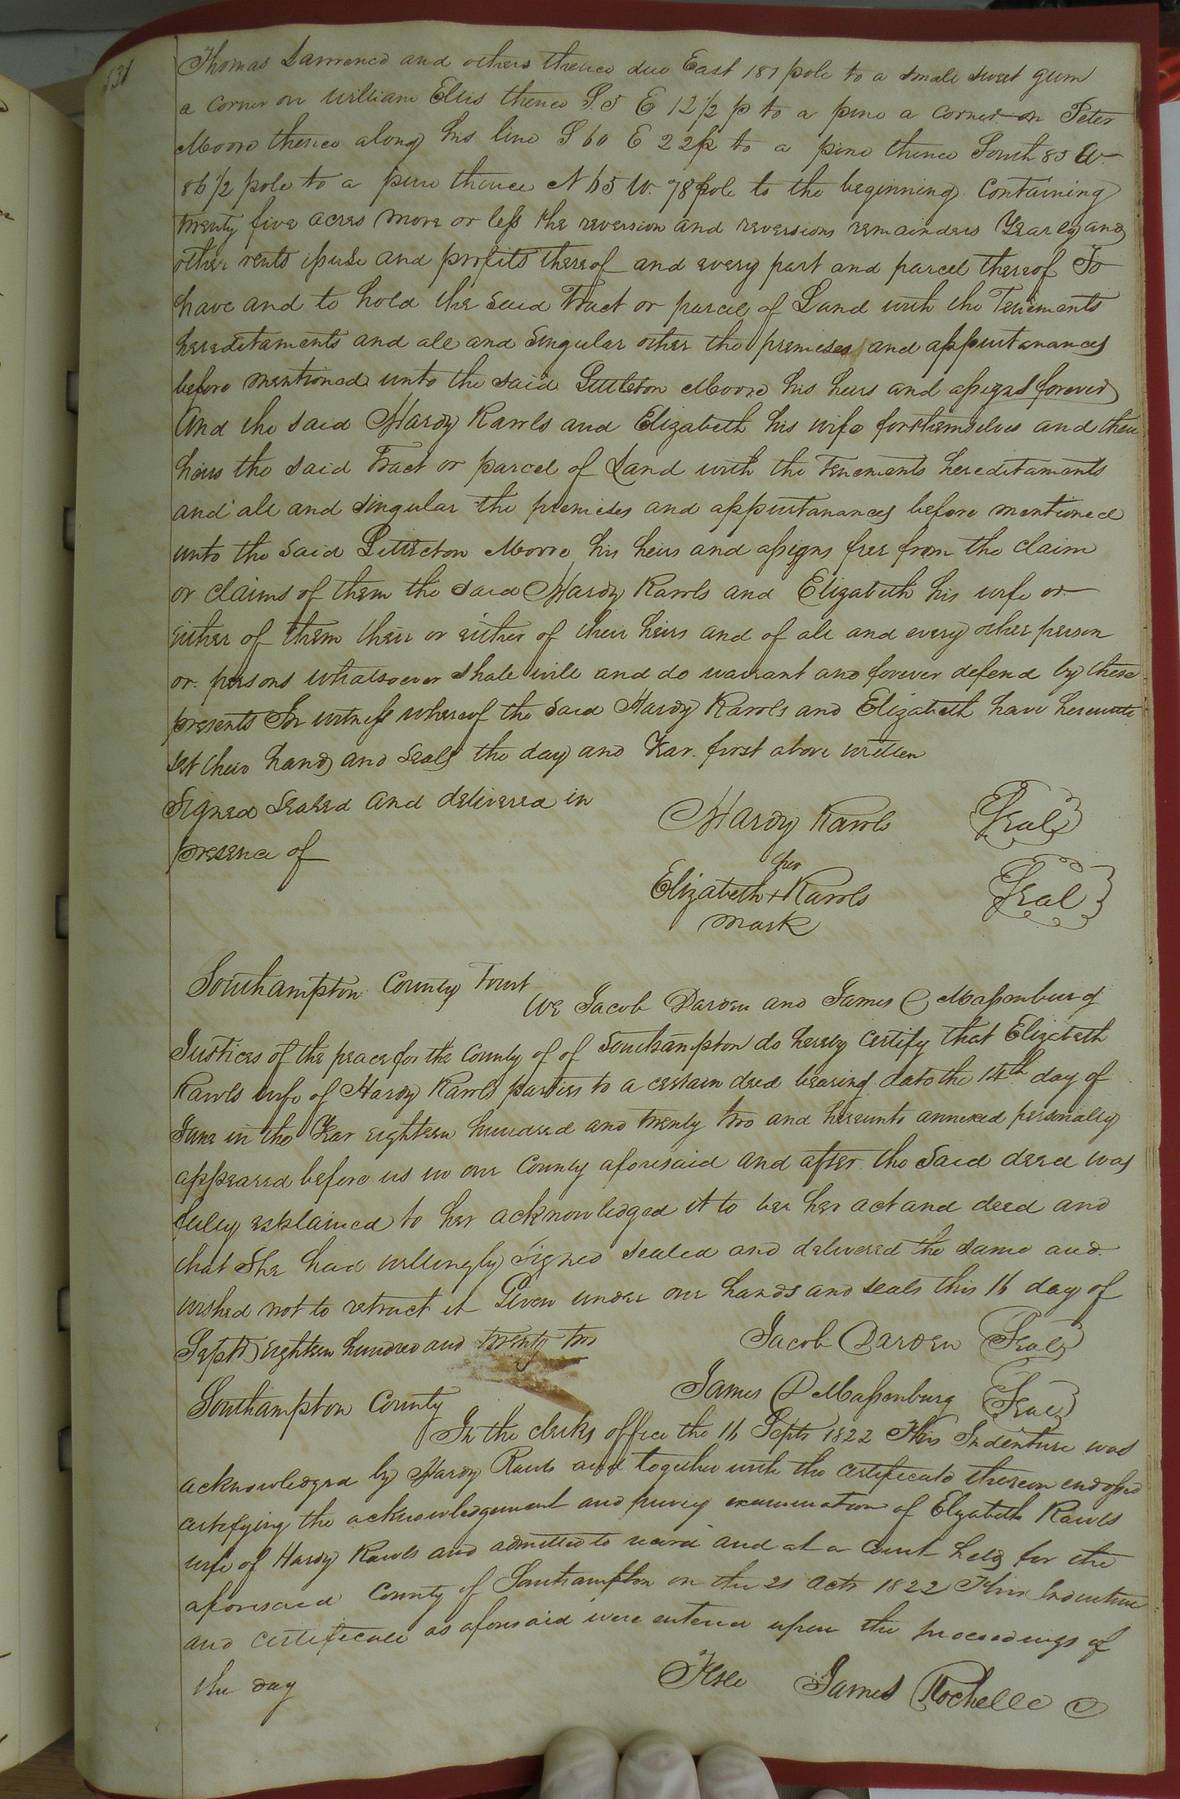 531
Thomas Lawrence and others thence due East 187 pole to a small sweet gum
a corner on William Ellis thence S. 5 E 12 1/2 p to a pine a corner on Peter
Moore thence along his line S 60 E 22p to a pine thence South 85 W
86 1/2 pole to a pine thence N 65 W. 78 pole to the beginning containing
twenty five acres more or less the reversion and reversions remainders Yearly and
other rents issues and profits thereof and every part and parcel thereof To
have and to hold the said Tract or parcel of Land with the Tenements
hereditaments and all and singular other the premises and appurtanances
before mentioned unto the said Littleton Moore his heirs and assigns forever
And the said Hardy Rawls and Elizabeth his wife for themselves and their
heirs the said Tract or parcel of Land with the Tenements hereditaments
and all and singular the premises and appurtanances before mentioned
unto the said Littleton Moore his heirs and assigns free from the claim
or claims of them the said Hardy Rawls and Elizabeth his wife or
either of them their or either of their heirs and of all and every other person
or persons whatsoever shall will and do warrant and forever defend by these
presents In witness whereof the said Hardy Rawls and Elizabeth have hereunto
set their hands and seals the day and Year first above written
Signed Sealed and delivered in
presence of
Hardy Rawls Seal
her
Elizabeth + Rawls Seal
mark
Southampton County Towit
We Jacob Darden and James Massenburg
Justices of the peace for the County of of Southampton do hereby certify that Elizabeth
Rawls wife of Hardy Rawls parties to a certain deed bearing date the 14th day of
June in the Year eighteen hundred and twenty two and hereunto annexed personally
appeared before us in our County aforesaid and after the said deed was
fully explained to her acknowledged it to be her act and deed and
that she had willingly signed sealed and delivered the same and
wished not to retract it Given under our hands and seals this 16 day of
Septr eighteen hundred and twenty two
Jacob Darden Seal
James D Massenburg Seal
Southampton County
In the clerks office the 16 Septr 1822 This Indenture was
acknowledged by Hardy Rawls and together with the certificate thereon endorsed
certifying the acknowledgement and privy examination of Elizabeth Rawls
wife of Hardy Rawls and admitted to record and at a Court held for the
aforesaid County of Southampton on the 21 Octr 1822 This Indenture
and certificate as aforesaid were entered upon the proceedings of
the day
Teste James Rochelle C